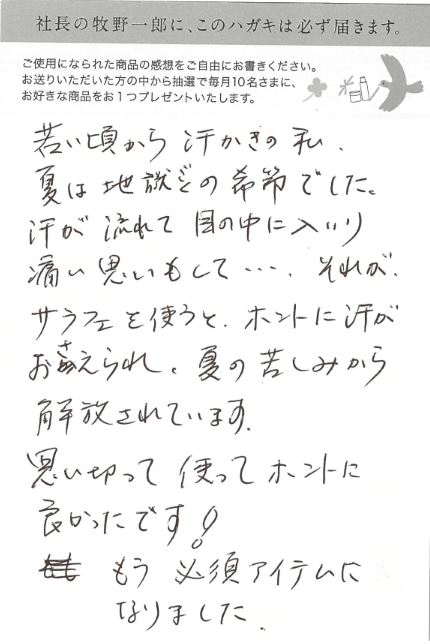 社長の牧野一郎に、このハガキは必ず届きます。
ご使用になられた商品の感想をご自由にお書きください。
お送りいただいた方の中から抽選で毎月10名さまに、
お好きな商品をお1つプレゼントいたします。
若い頃から汗かきの私、
夏は地獄の季節でした。
汗が流れて目の中に入いり
痛い思いもして・・・、それが、
サラフェを使うと、ホントに汗が
おさえられ、夏の苦しみから
解放されています。
思い切って使ってホントに
良かったです!
もう必須アイテムに
なりました。